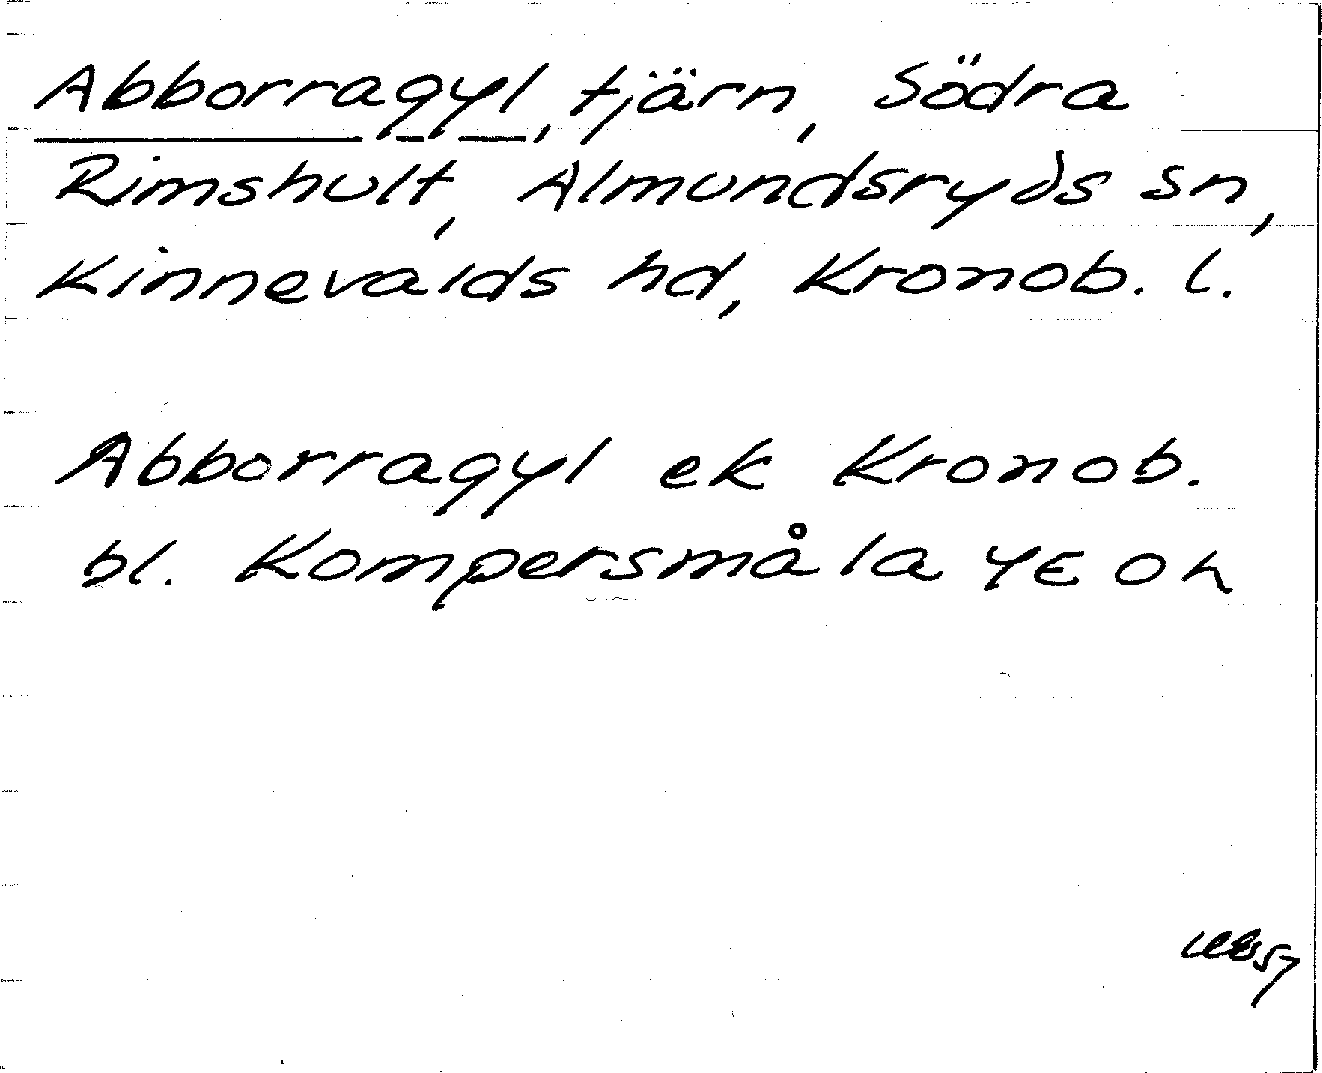 Abborragyl, tjärn, Södra
Rimshult, Almundsryds sn,
Kinnevalds hd, Kronob. l.
Abborragyl ek Kronob.
bl. Kompersmåla 4E0h